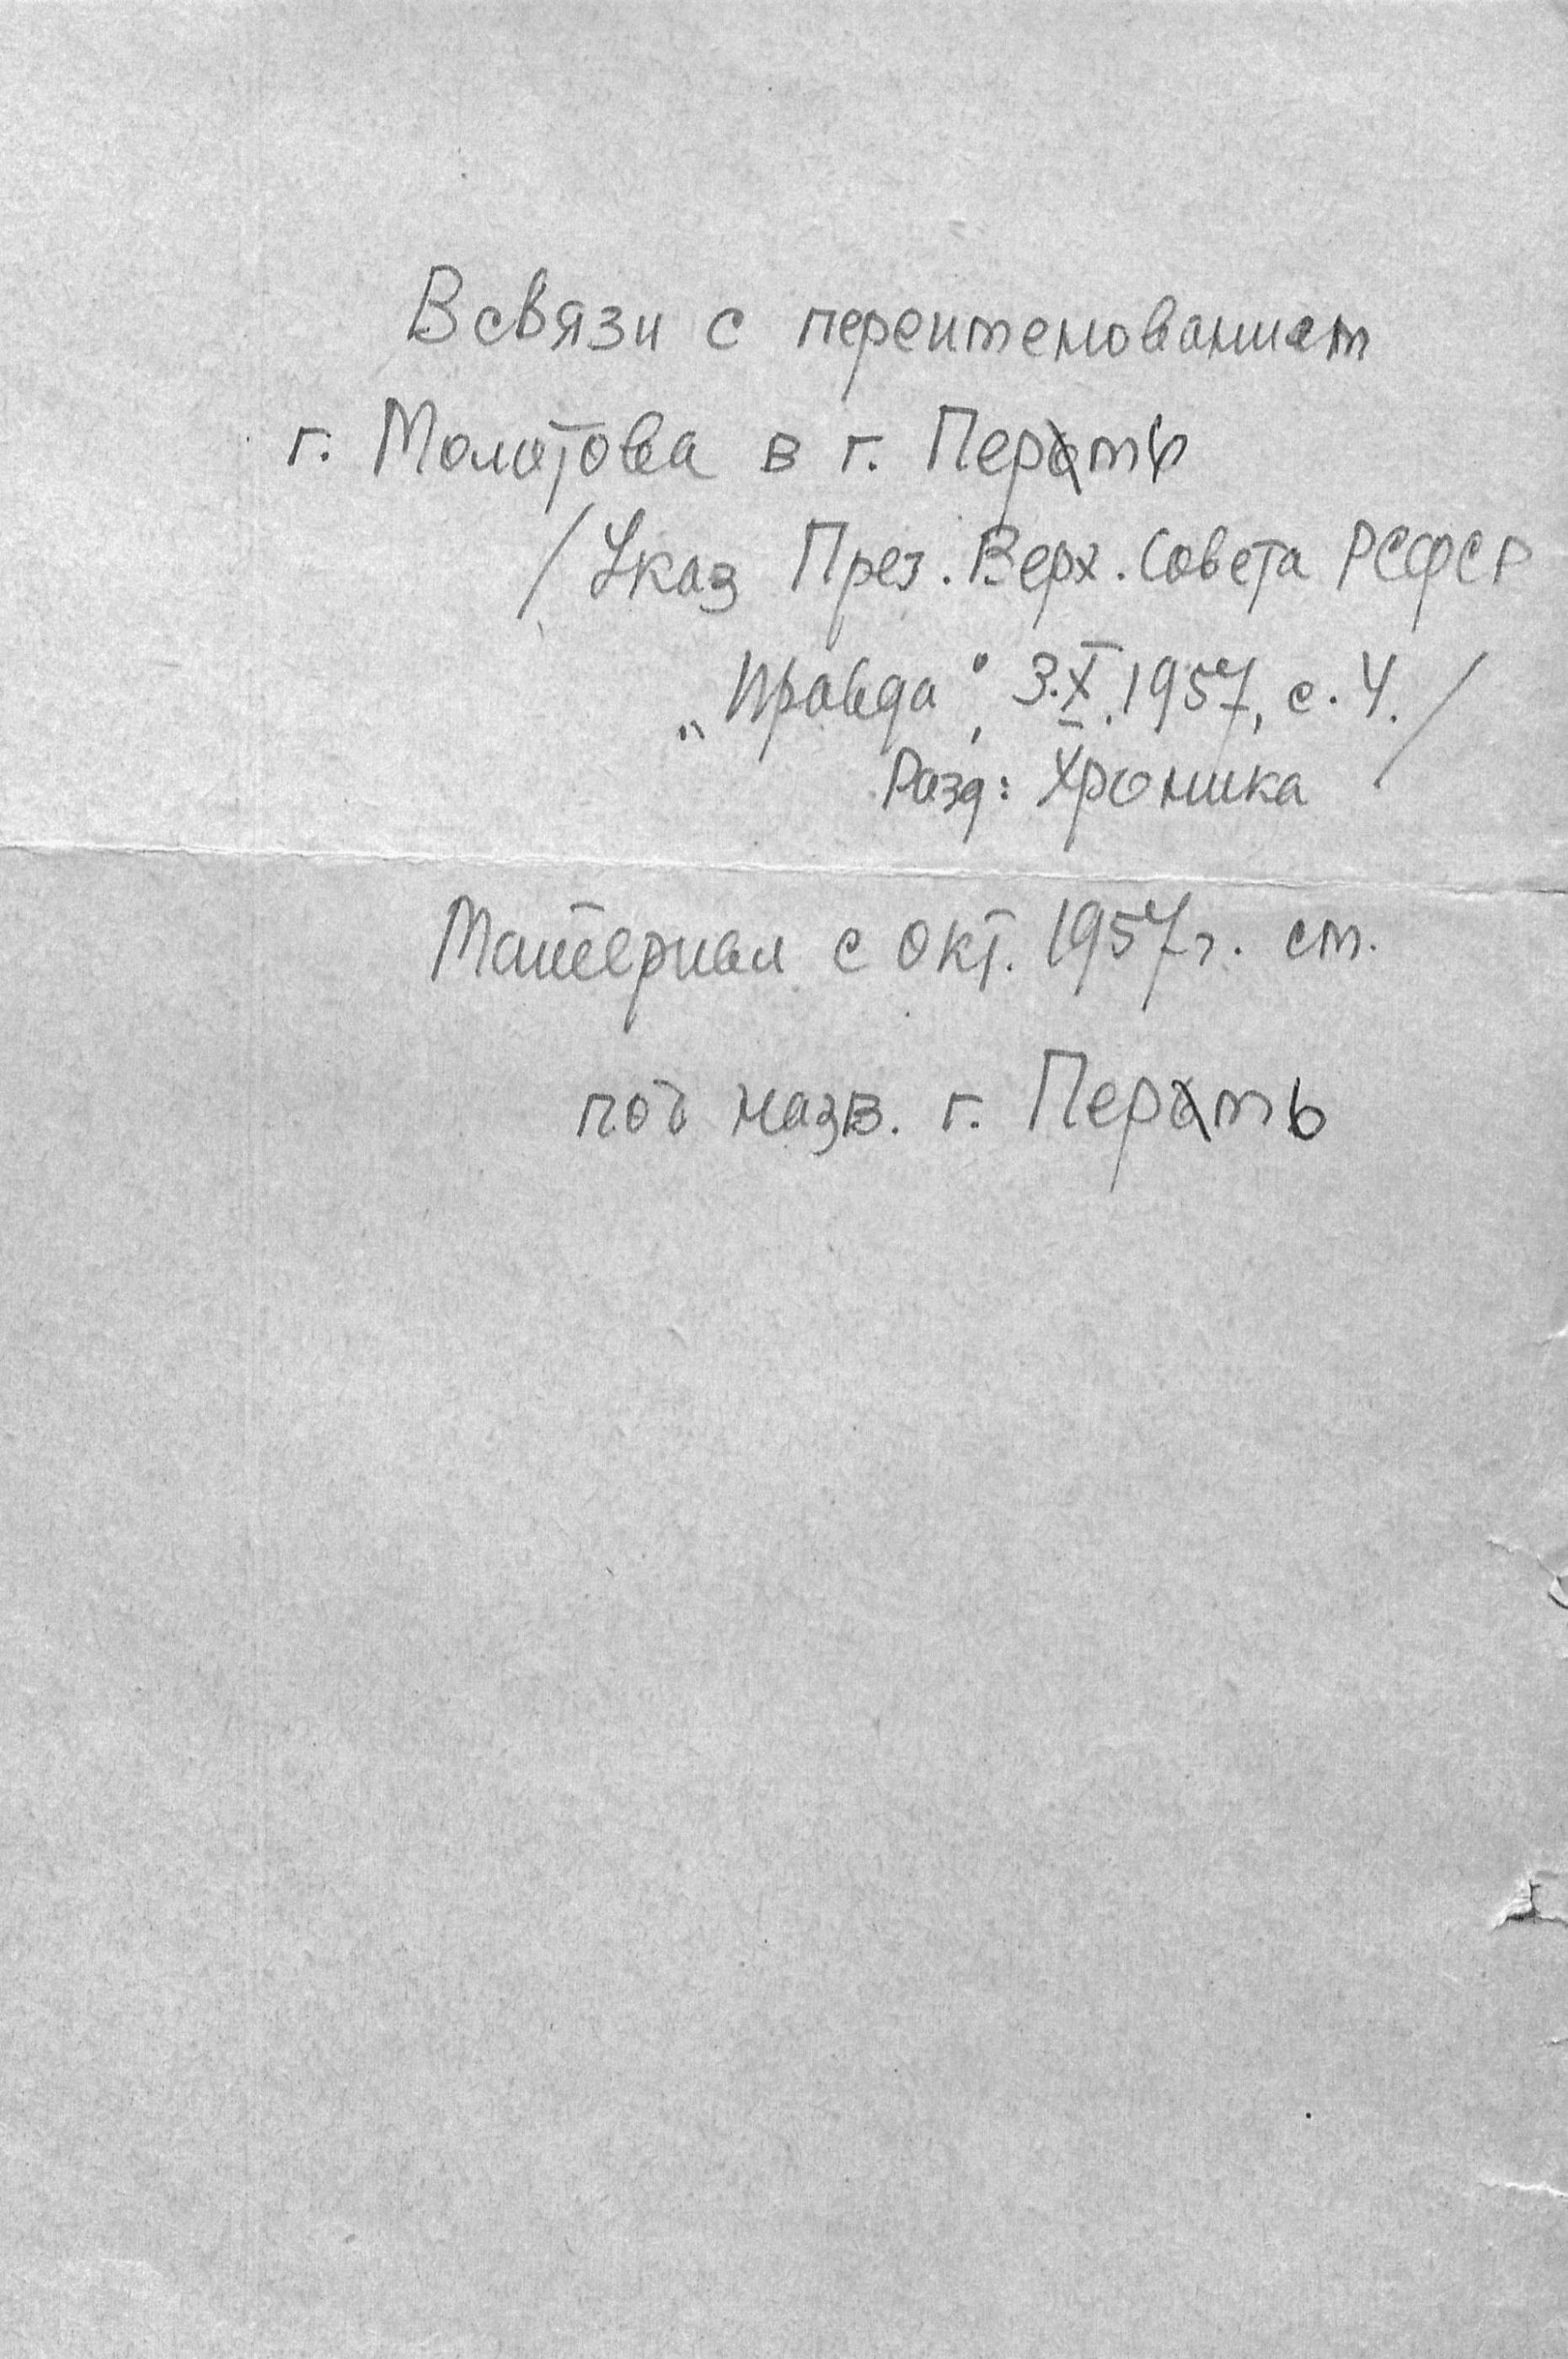 В связи с переименованием
г. Молотова в г. Пермь
/Указ През. Верх. Совета РСФСР
„Правда", 3.X.1957, с. 4./
Разд: Хроника
Материал с окт. 1957 г. см.
под назв. г. Пермь